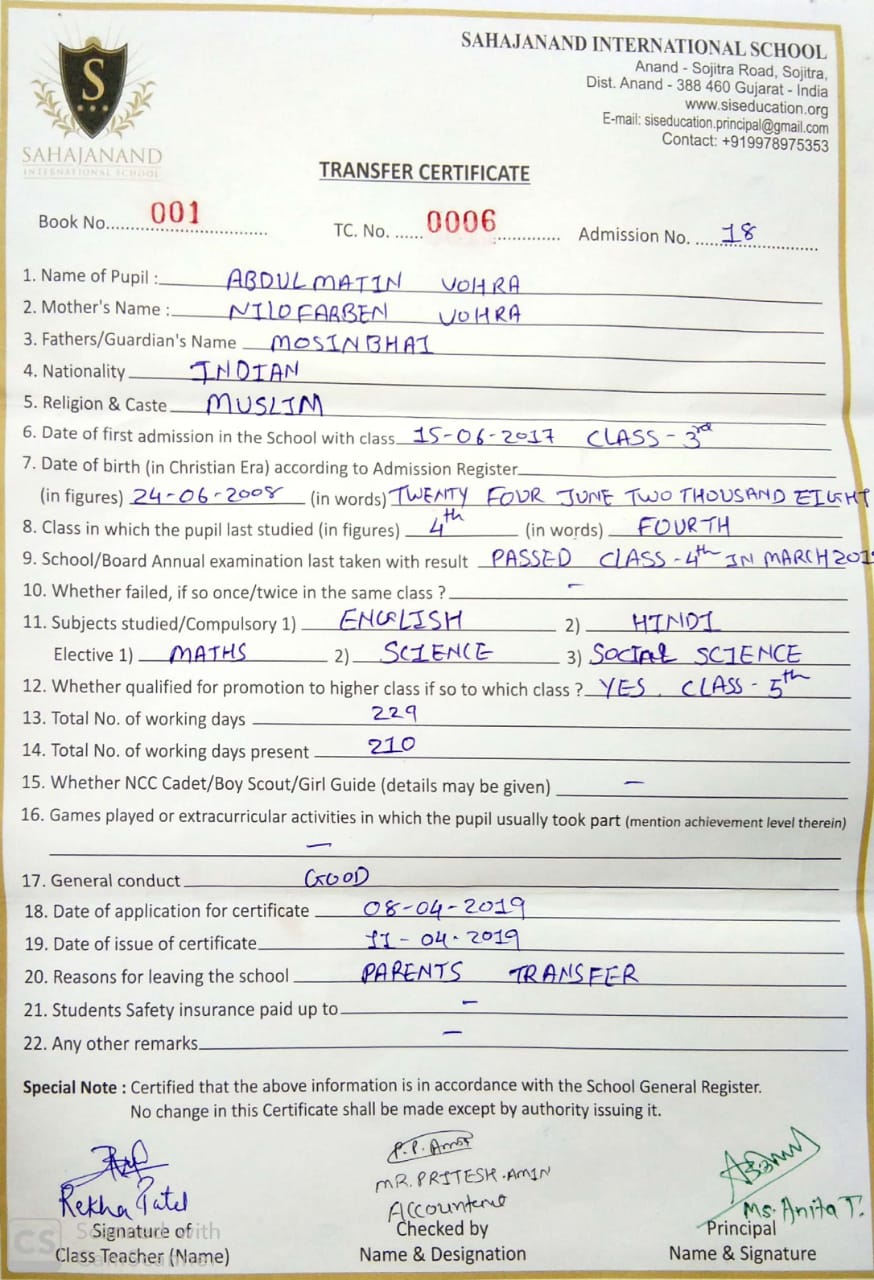 S
SAHAJANAND
INTERNATIONAL SCHOOL
SAHAJANAND INTERNATIONAL SCHOOL
Anand - Sojitra Road, Sojitra,
Dist. Anand - 388 460 Gujarat - India
www.siseducation.org
E-mail: siseducation.principal@gmail.com
Contact: +919978975353
TRANSFER CERTIFICATE
Book No. 001 TC. No. 0006 Admission No. 18
1. Name of Pupil : ABDULMATIN VOHRA
2. Mother's Name : NILOFARBEN VOHRA
3. Fathers/Guardian's Name MOSINBHAI
4. Nationality INDIAN
5. Religion & Caste MUSLIM
6. Date of first admission in the School with class 15-06-2017 CLASS - 3rd
7. Date of birth (in Christian Era) according to Admission Register
(in figures) 24-06-2008 (in words) TWENTY FOUR JUNE TWO THOUSAND EIGHT
8. Class in which the pupil last studied (in figures) 4th (in words) FOURTH
9. School/Board Annual examination last taken with result PASSED CLASS - 4th IN MARCH 2019
10. Whether failed, if so once/twice in the same class ? -
11. Subjects studied/Compulsory 1) ENGLISH 2) HINDI
Elective 1) MATHS 2) SCIENCE 3) SOCIAL SCIENCE
12. Whether qualified for promotion to higher class if so to which class ? YES. CLASS - 5th
13. Total No. of working days 229
14. Total No. of working days present 210
15. Whether NCC Cadet/Boy Scout/Girl Guide (details may be given) -
16. Games played or extracurricular activities in which the pupil usually took part (mention achievement level therein)
-
17. General conduct GOOD
18. Date of application for certificate 08-04-2019
19. Date of issue of certificate 11-04-2019
20. Reasons for leaving the school PARENTS TRANSFER
21. Students Safety insurance paid up to -
22. Any other remarks -
Special Note : Certified that the above information is in accordance with the School General Register.
No change in this Certificate shall be made except by authority issuing it.
P.P. Amin
MR. PRITESH. AMIN
Rekha Patel Ms. Anita T.
Signature of Checked by Principal
Class Teacher (Name) Name & Designation Name & Signature
CS Scanned with
CamScanner